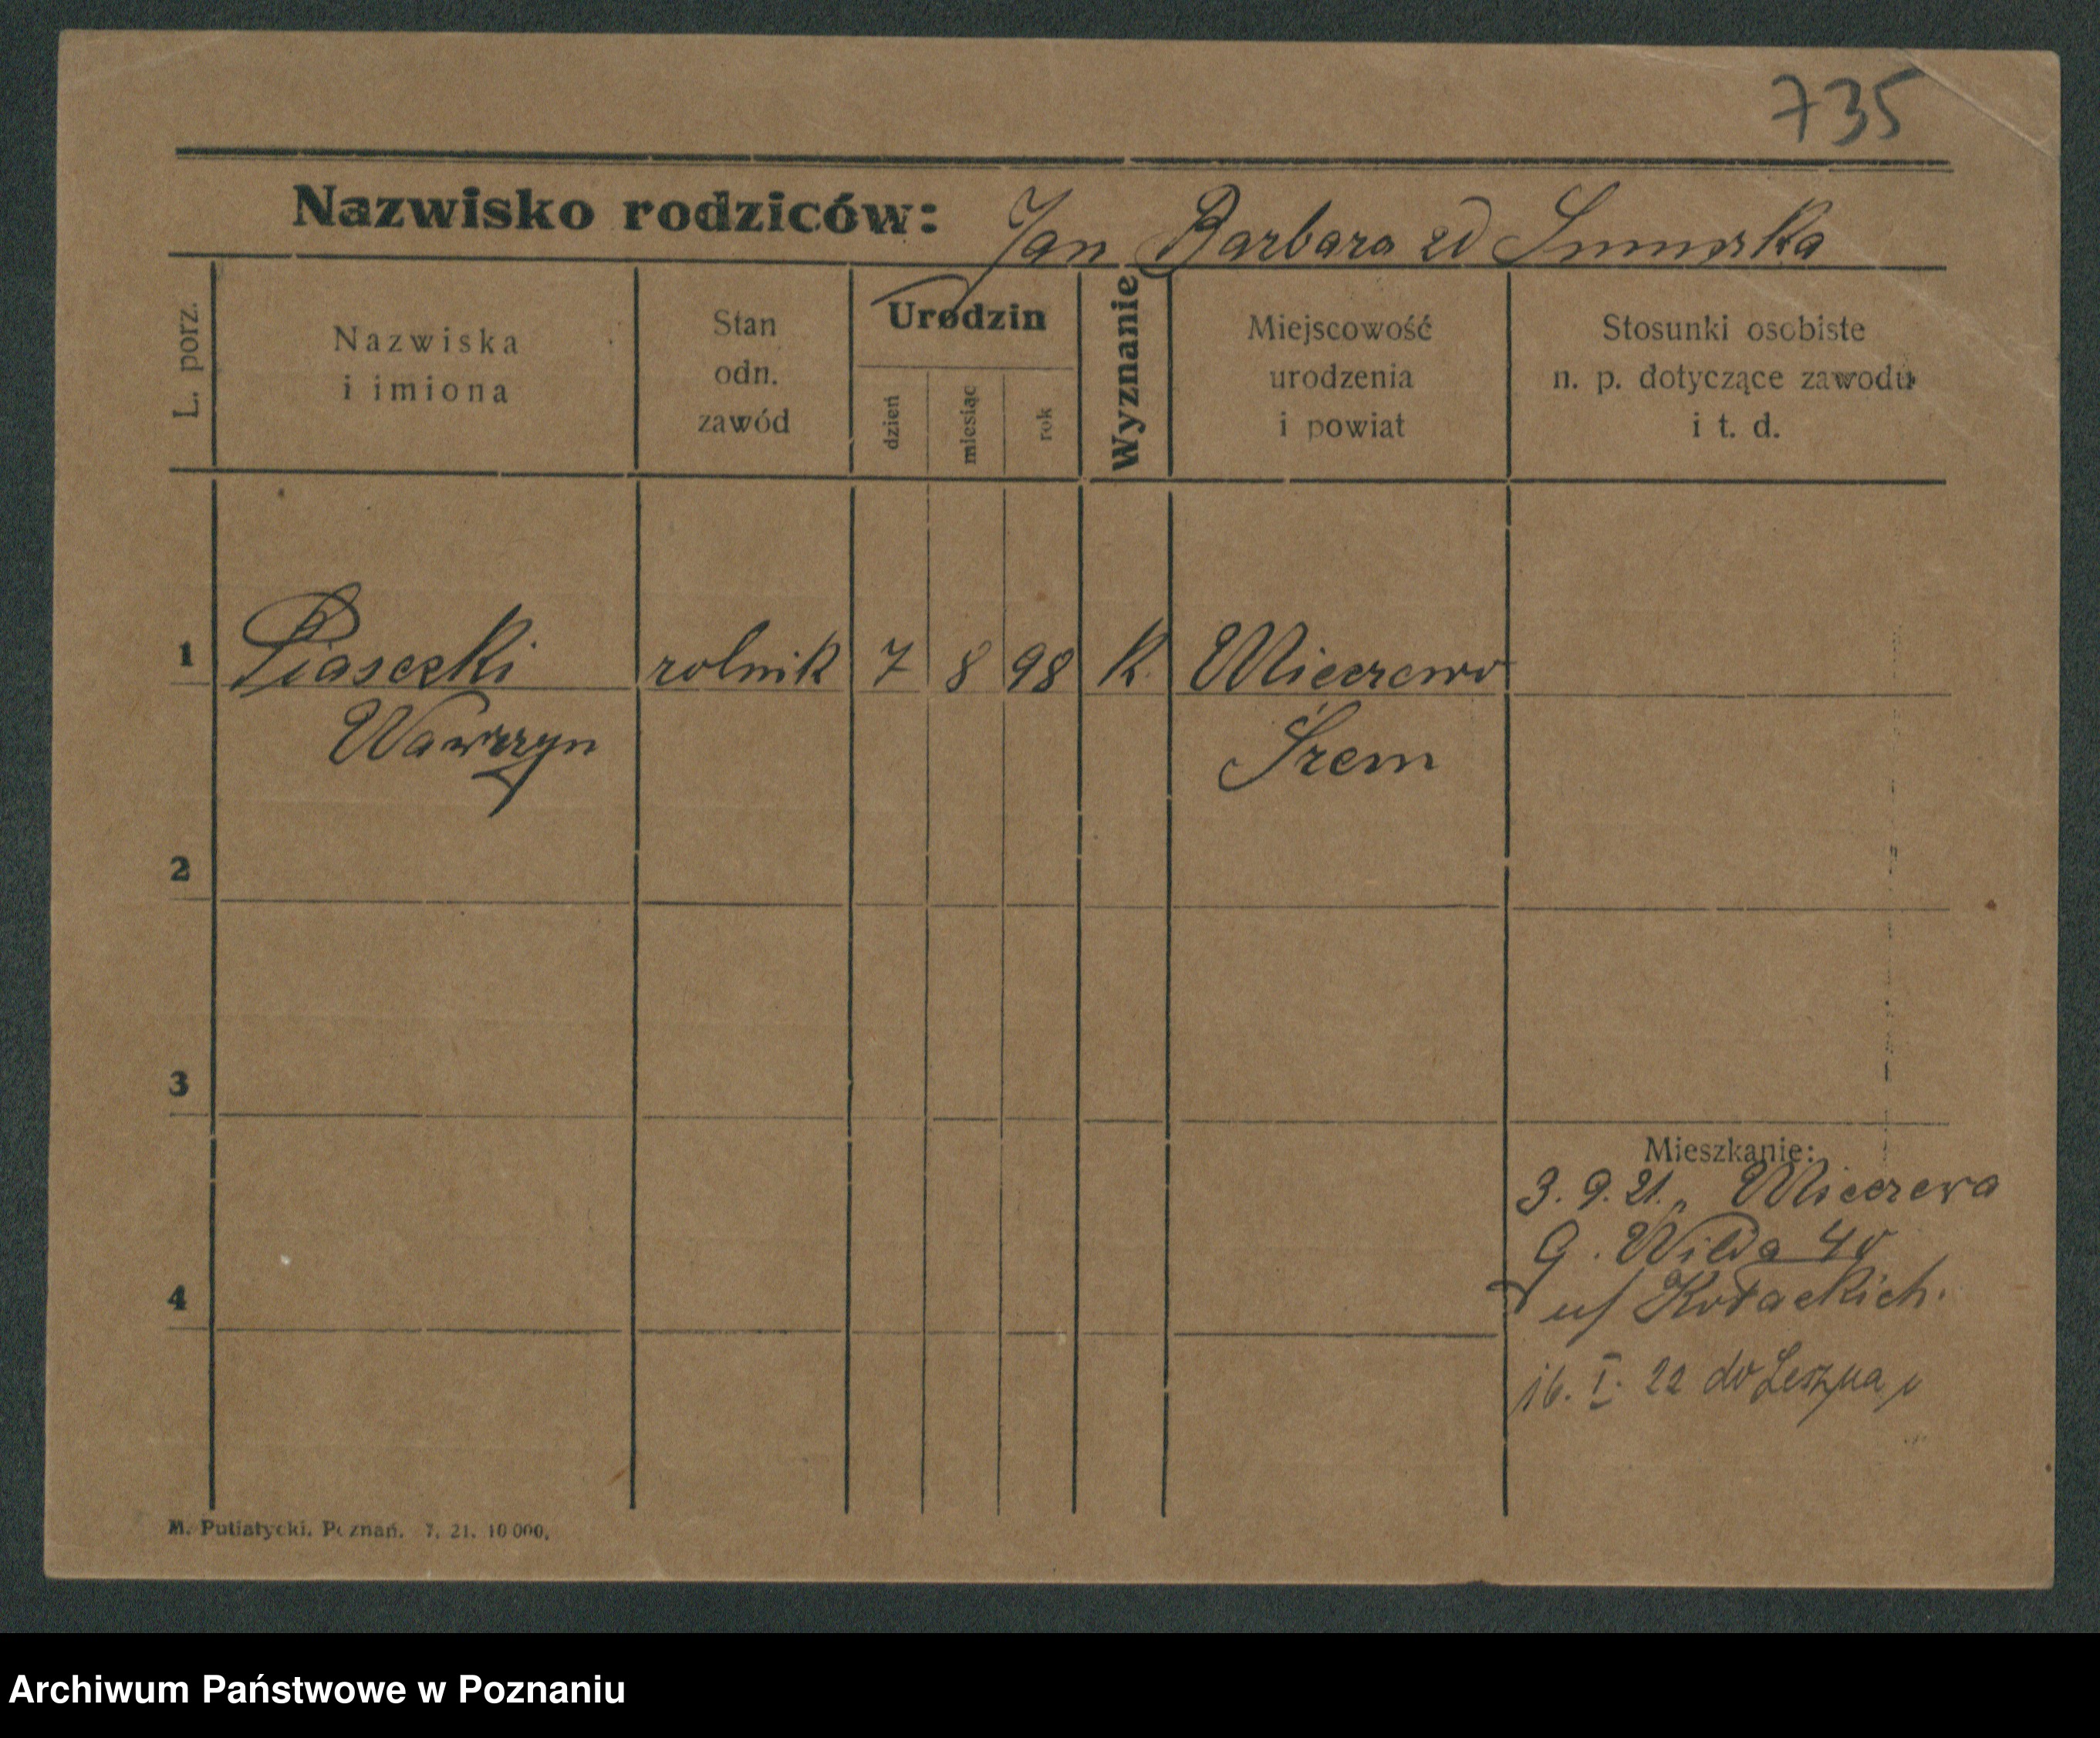 735
Nazwisko rodziców: Jan Barbara zd
L. porz.
Nazwiska
i imiona
Stan
odn.
zawód
Urodzin
dzień
miesiąc
rok
Wyznanie
Miejscowość
urodzenia
i powiat
Stosunki osobiste
n. p. dotyczące zawodu
i t. d.
1 Piasecki rolnik 7 8 98 K. Mieczewo
Wawrzyn Śrem
2
3
Mieszkanie:
3. 9. 21. Mieczewa
G. Wilda 40
u/ Kołackich.
4
16. I. 22 do Leszna
M. Putiatycki. Poznań. 7. 21. 10 000.
Archiwum Państwowe w Poznaniu